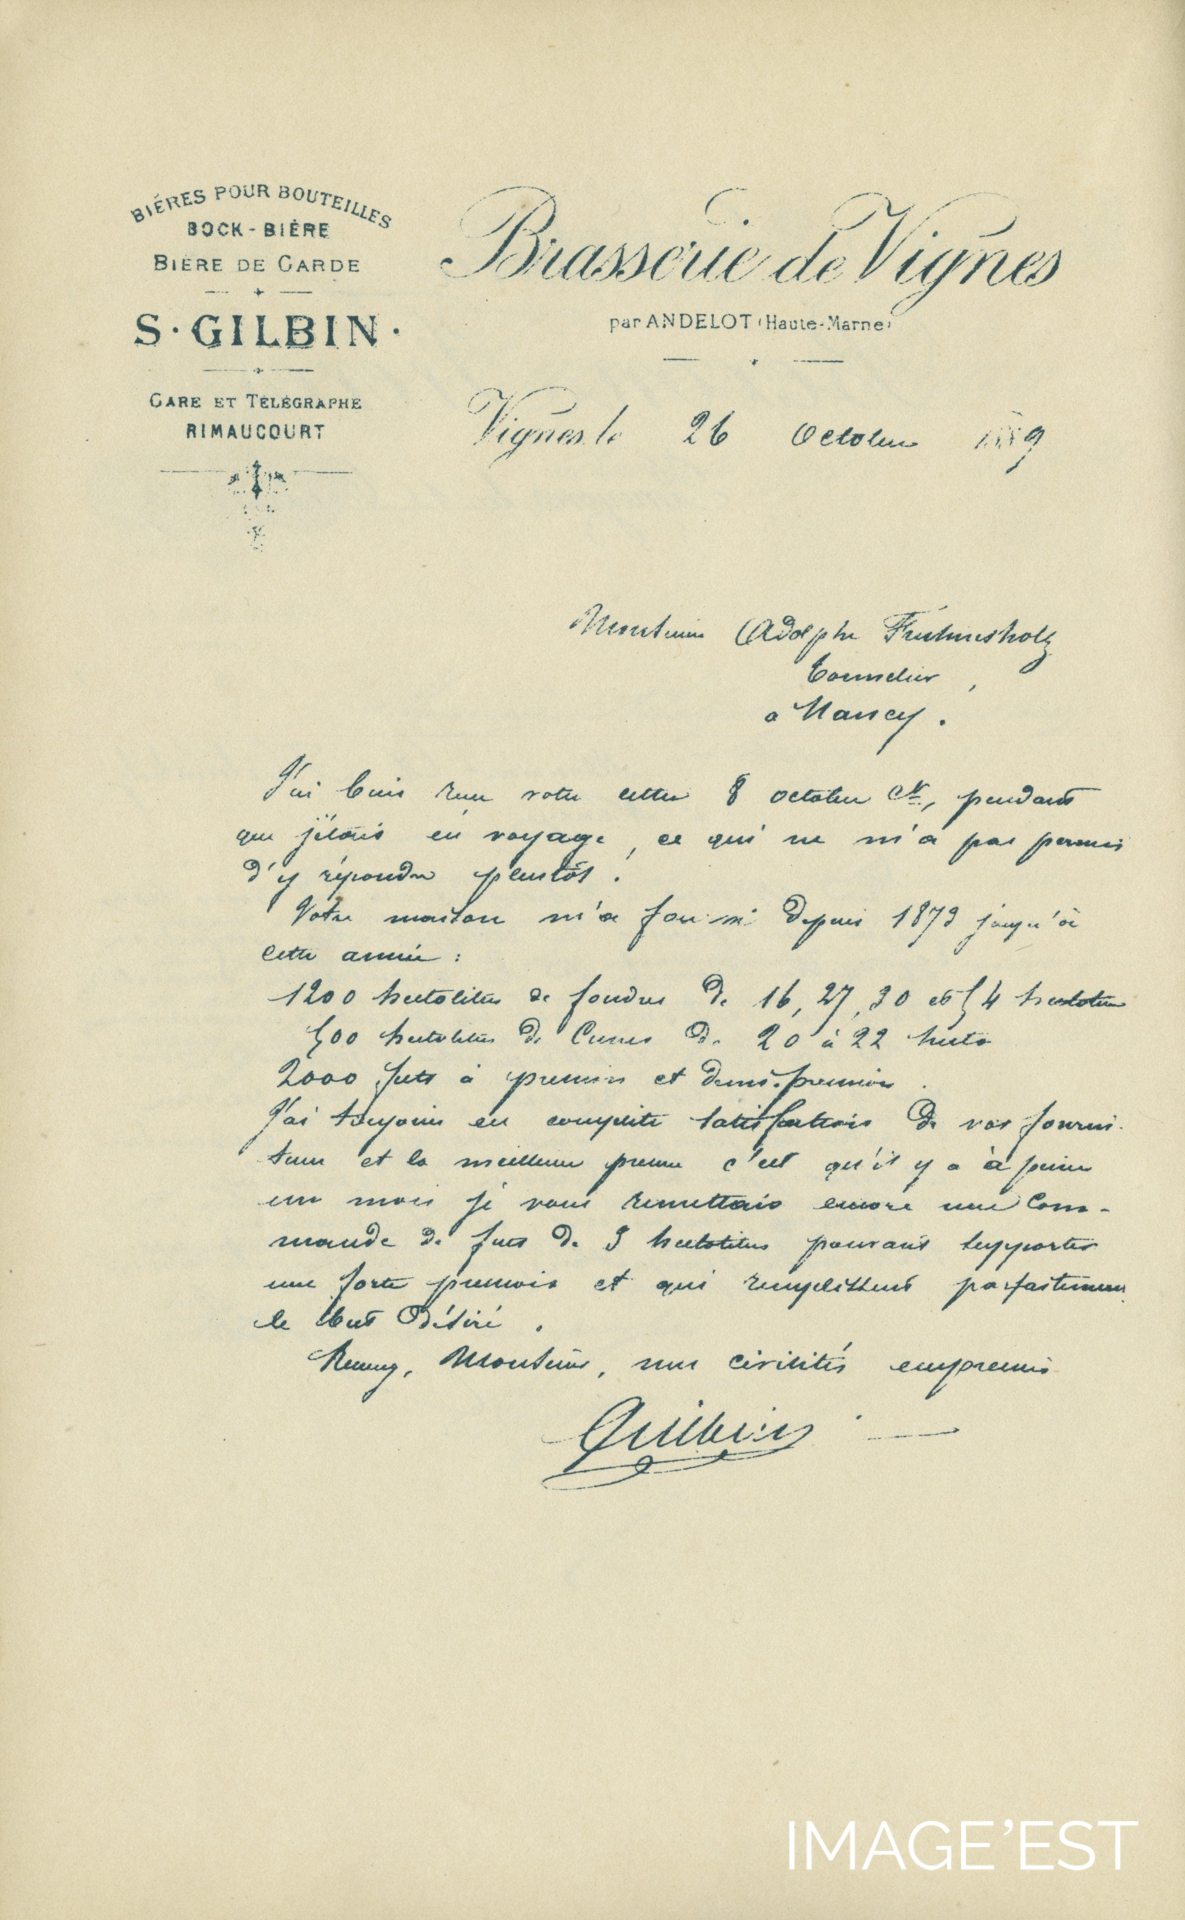 BIÈRES POUR BOUTEILLES
BOCK-BIÈRE
BIÈRE DE GARDE
S. GILBIN.
GARE ET TÉLÉGRAPHE
RIMAUCOURT
Brasserie de Vignes
par ANDELOT (Haute-Marne)
Vignes, le 26 Octobre 1889
Monsieur Adolphe Fruhinsholz
Tonnelier,
à Nancy.
J'ai bien reçu votre lettre 8 octobre ct, pendant
que j'étais en voyage, ce qui ne m'a pas permis
d'y répondre plustôt.
Votre maison m'a fourni depuis 1873 jusqu'à
cette année :
1200 hectolitres de foudres de 16, 27, 30 et 54 hectolitres
500 hectolitres de Cuves de 20 à 22 hecto
2000 futs à pression et demi-pression.
J'ai toujours eu complète satisfaction de vos fourni-
tures et la meilleure preuve c'est qu'il y a à peine
un mois je vous remettais encore une Com-
mande de futs de 3 hectolitres pouvant supporter
une forte pression et qui remplissent parfaitement
le but désiré.
Recevez, Monsieur, mes civilités empressées
Guilbin
IMAGE'EST